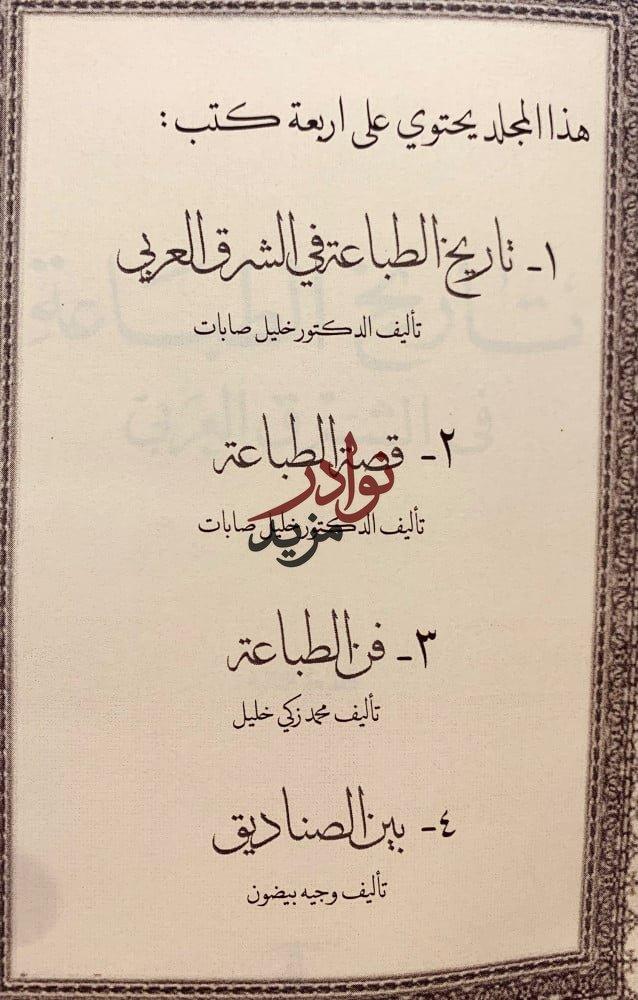 هذا المجلد يحتوي على اربعة كتب :
١- تاريخ الطباعة في الشرق العربي
تأليف الدكتور خليل صابات
٢- قصة الطباعة
نوادر
تأليف الدكتور خليل صابات
مزيد
٣- فن الطباعة
تأليف محمد زكي خليل
٤- بين الصناديق
تأليف وجيه بيضون